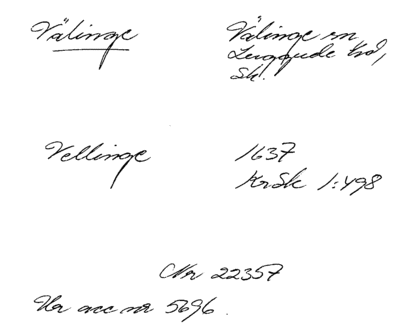 Välinge
Välinge sn
Luggude hd,
Sk.
Vellinge
1637
KrSk 1:498
Nr 22357
Ur acc nr 5696.